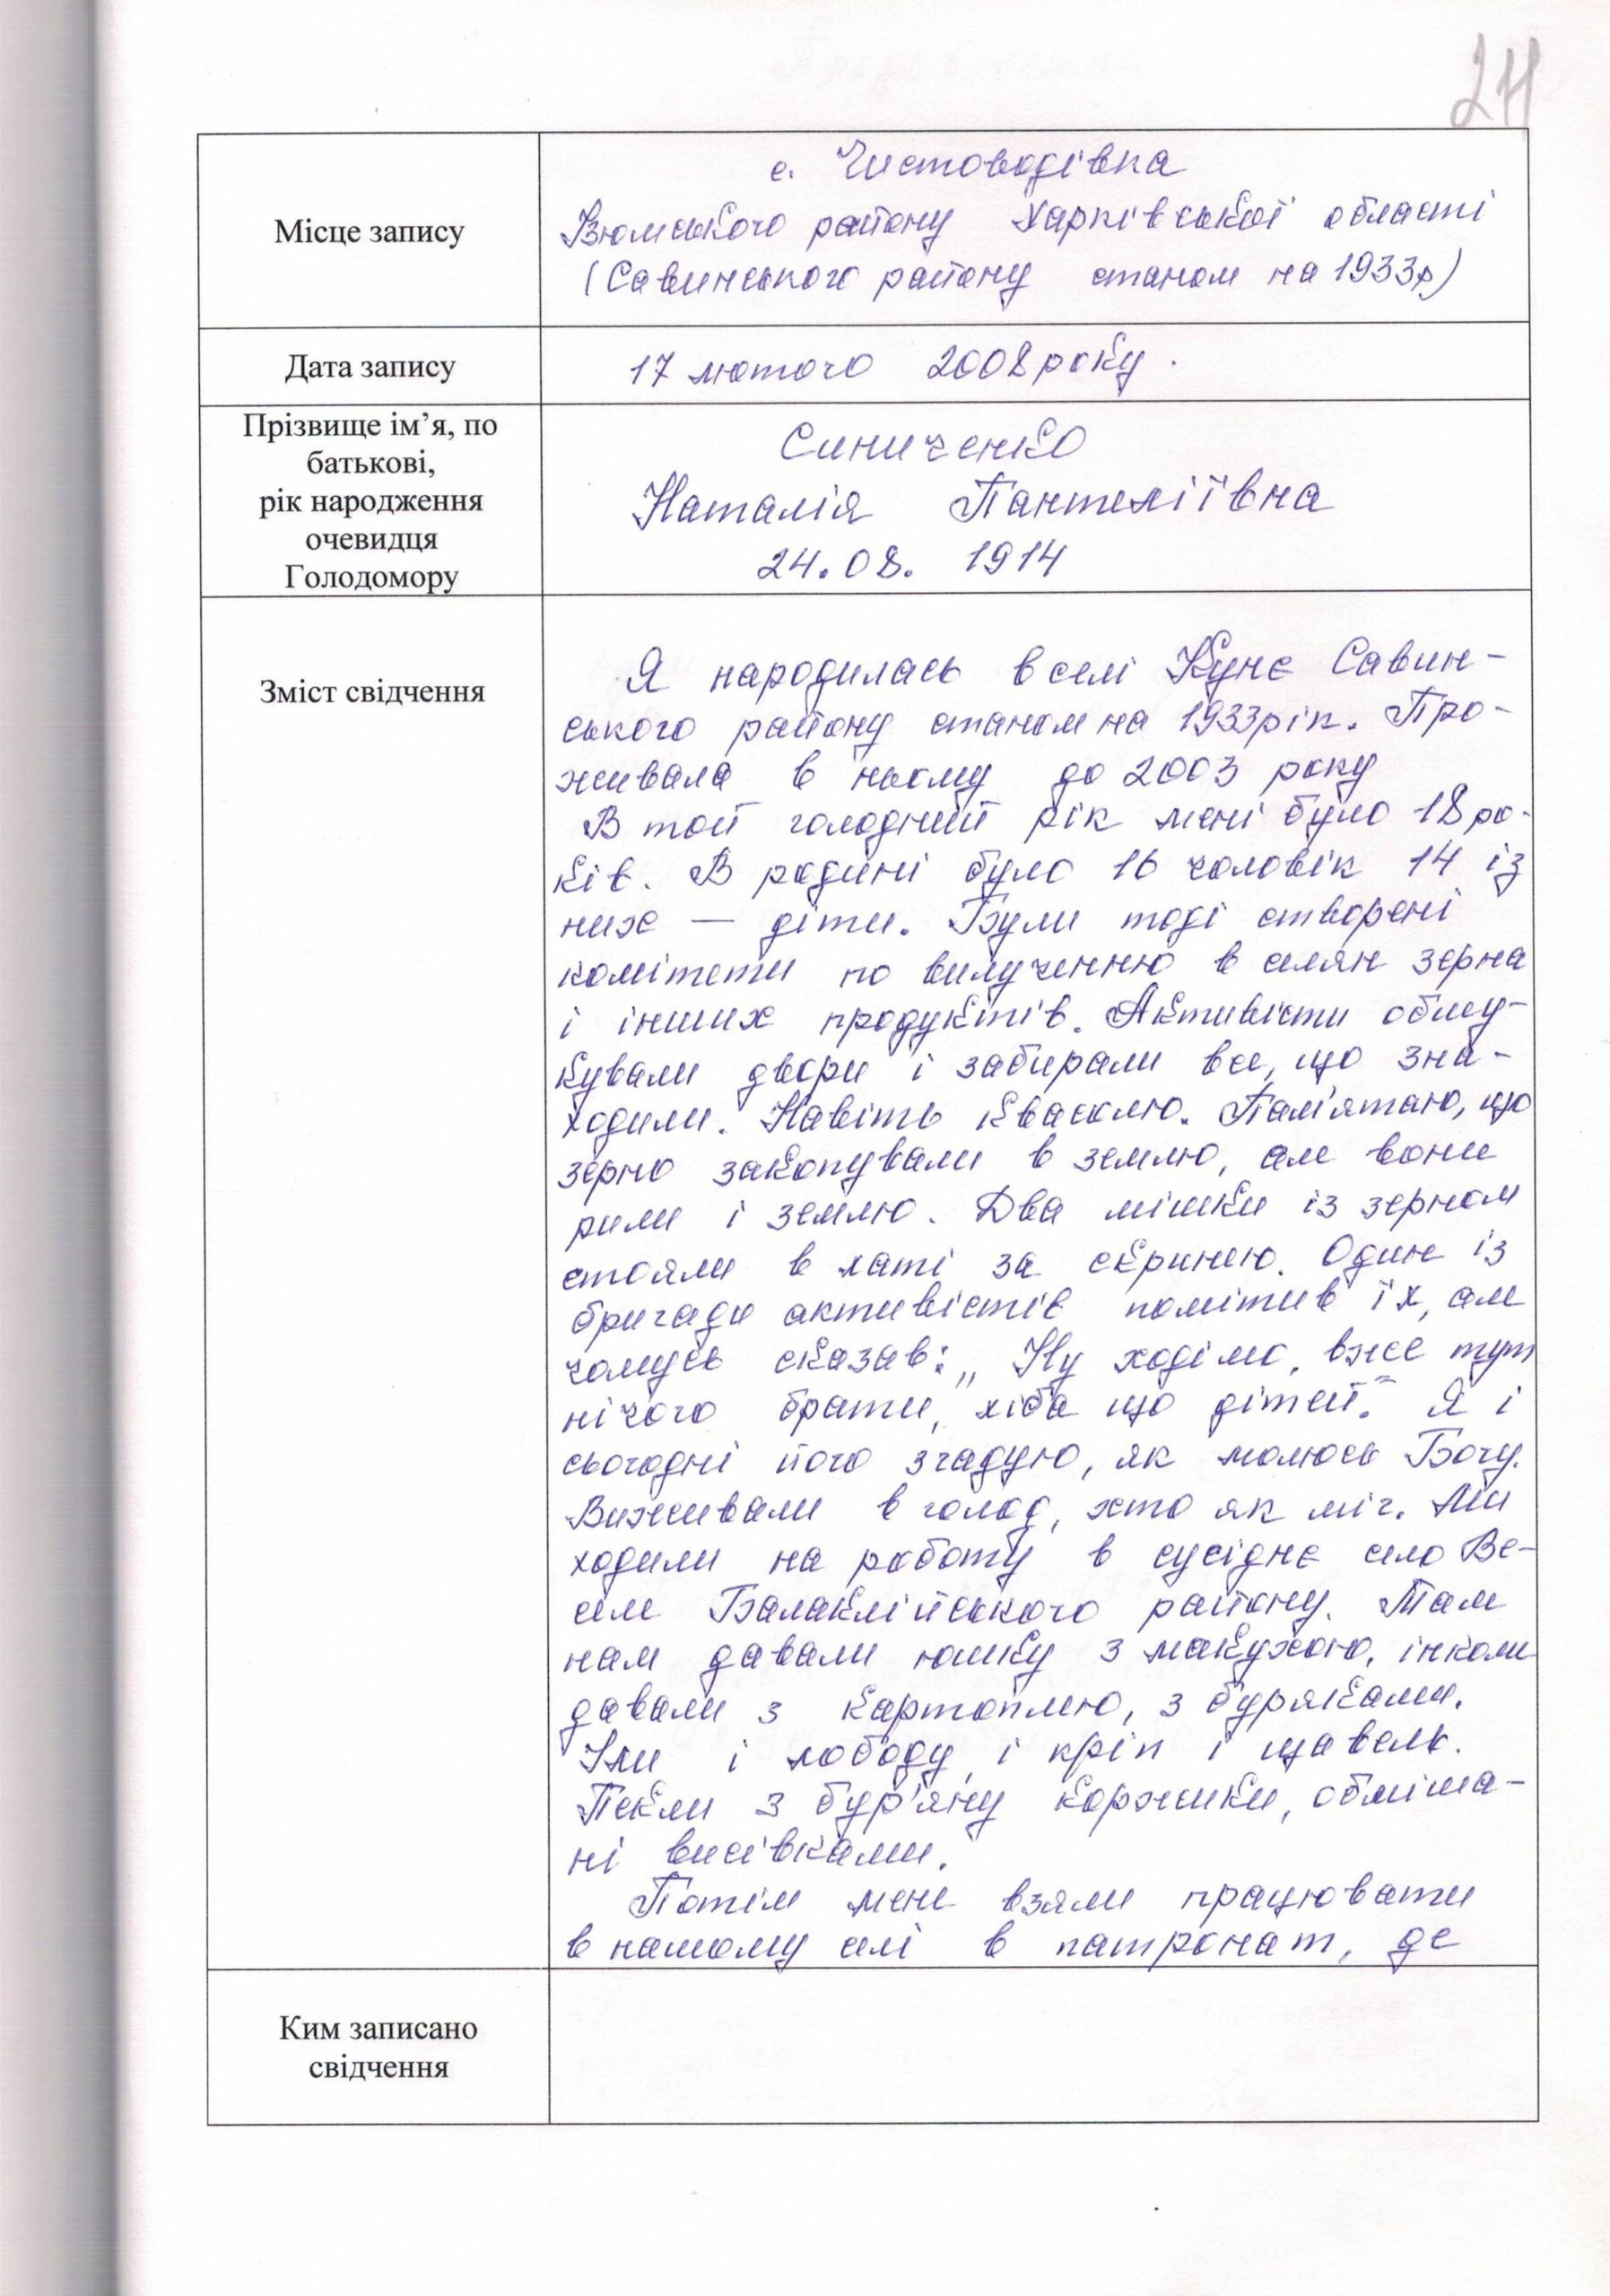 24
Місце запису
с. Чистоводівка
Ізюмського району Харківської області
(Савинського району станом на 1933р)
Дата запису
17 лютого 2008 року.
Прізвище ім’я, по
батькові,
рік народження
очевидця
Голодомору
Синиченко
Наталія Пантеліївна
24.08. 1914
Зміст свідчення
Я народилась в селі Кунє Савин-
ського району станом на 1933 рік. Про-
живала в ньому до 2003 року
В той голодний рік мені було 18 ро-
ків. В родині було 16 чоловік 14 із
них — діти. Були тоді створені
комітети по вилученню в селян зерна
і інших продуктів. Активісти обшу-
кували двори і забирали все, що зна-
ходили. Навіть квасолю. Пам'ятаю, що
зерно закопували в землю, але вони
рили і землю. Два мішки із зерном
стояли в хаті за скринею. Один із
бригади активістів помітив їх, але
чомусь сказав: „Ну ходімо, вже тут
нічого брати, хіба що дітей." Я і
сьогодні його згадую, як молюсь Богу.
Виживали в голод, хто як міг. Ми
ходили на роботу в сусіднє село Ве-
селе Балаклійського району. Там
нам давали юшку з макухою, інколи
давали з картоплею, з буряками.
Їли і лободу, і кріп і щавель.
Пекли з бур'яну коржики, обліпле-
ні висівками.
Потім мене взяли працювати
в нашому селі в патронат, де
Ким записано
свідчення